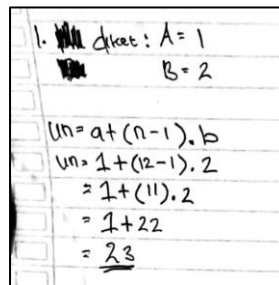 1. diket : A = 1
B = 2
Un = a + (n-1) . b
Un = 1 + (12-1) . 2
= 1 + (11) . 2
= 1 + 22
= 23